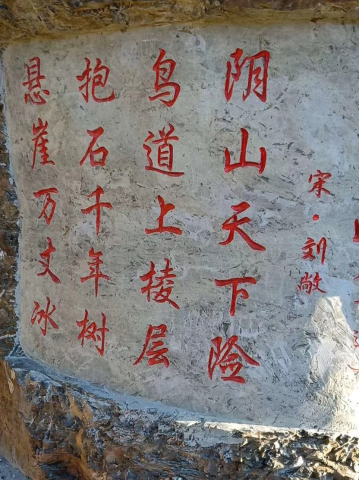 宋·刘敞
阴山天下险
鸟道上棱层
抱石千年树
悬崖万丈冰